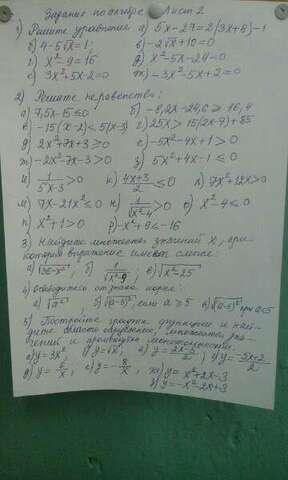 Задание по алгебре Лист 2
1) Решите уравнения а) 5x-27=2(3x+6)-1
б) 4-5√x=1; в) -2√x+10=0
г) x²-9=16 д) x²-5x-24=0
е) 3x²+5x-2=0 ж) -3x²-5x+2=0
2) Решите неравенства:
а) 7,5x-15≤0 б) -8,2x-24,6≥16,4
в) -15(x-2)<5(x-3) г) 25x>15(2x-7)+85
д) 2x²+7x+3≥0 е) -5x²-4x+1>0
ж) -2x²-7x-3>0 з) 5x²+4x-1≤0
и) 1/(5x-3)>0 к) (4x+3)/2≤0 л) 7x²+12x>0
м) 7x-21x²≤0 н) 1/√(x²-4)>0 о) x²-4≤0
п) x²+1>0 р) -x²+9≤-16
3. Найдите множество значений x, при
которых выражение имеет смысл:
а) √(36-x²); б) 1/√(x²-9) в) √(x²-25)
4) освободитесь от знака корня:
а) √a² б) √(a-5)², если a≥5 в) √(a-5)² при a<5
5) Постройте график функции и най-
дите область определения, множество зна-
чений и промежутки монотонности.
а) y=3x², б) y=√x, в) y=(2x-2)/2; г) y=(-3x+2)/2
д) y=6/x, е) y=-8/x, ж) y=x²+2x-3
з) y=-x²-2x+3